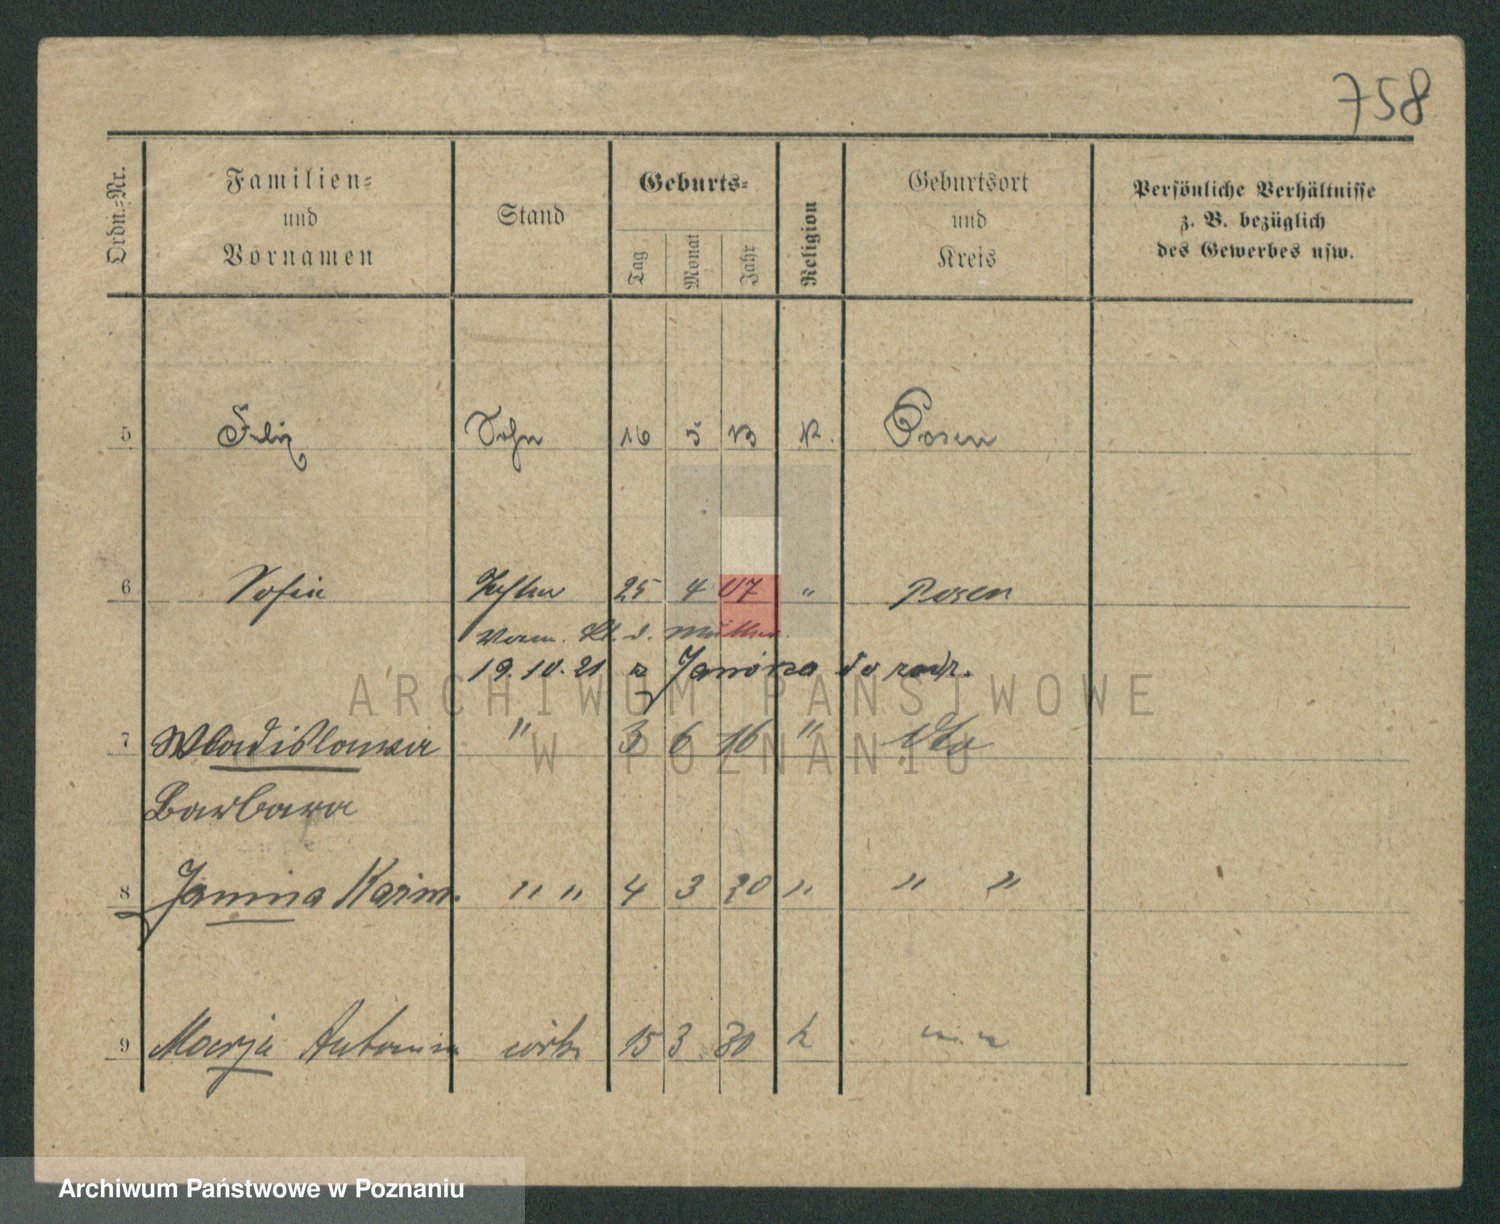 758
Ordn.-Nr.
Familien-
und
Vornamen
Stand
Geburts-
Tag
Monat
Jahr
Religion
Geburtsort
und
Kreis
Persönliche Verhältnisse
z. B. bezüglich
des Gewerbes usw.
5 Felix Sohn 16 5 13 K. Posen
6 Sofie Tochter 25 4 07 " Posen
19.10.21 z Janówca do rodz.
7 Wladislawa " 3 6 16 " dto
Barbara
8 Janina Kazim. " " 4 3 20 " " "
9 Marja Antonina córka 15 3 30 k
ARCHIWUM PAŃSTWOWE
W POZNANIU
Archiwum Państwowe w Poznaniu